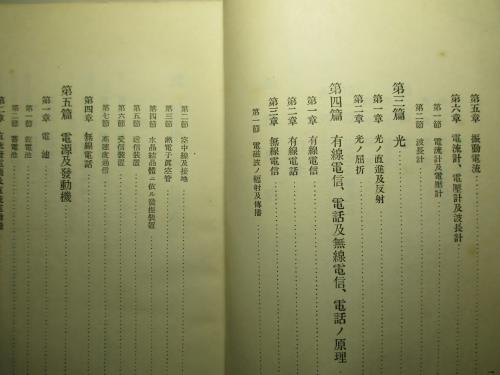 第五章 振動電流
第六章 電流計、電壓計及波長計
第一節 電流計及電壓計
第二節 波長計
第三篇 光
第一章 光ノ直進及反射
第二章 光ノ屈折
第四篇 有線電信、電話及無線電信、電話ノ原理
第一章 有線電信
第二章 有線電話
第三章 無線電信
第一節 電磁波ノ輻射及傳播
第二節 空中線及接地
第三節 熱電子眞空管
第四節 水晶結晶體ニ依ル發振裝置
第五節 送信裝置
第六節 受信裝置
第七節 高速度通信
第四章 無線電話
第五篇 電源及發動機
第一章 電池
第一節 乾電池
第二節 蓄電池